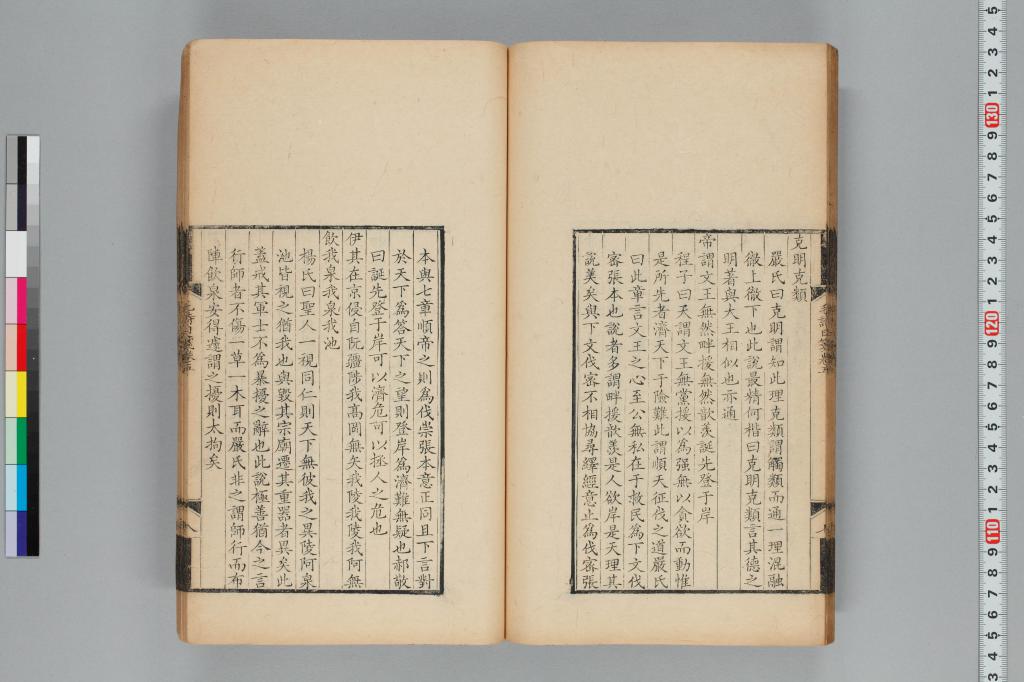 克明克類
嚴氏曰克明謂知此理克類謂觸類而通一理混融
徹上徹下也此說最精何楷曰克明克類言其德之
明著與大王相似也亦通
帝謂文王無然畔援無然歆羨誕先登于岸
程子曰天謂文王無黨援以為强無以貪欲而動惟
是所先者濟天下于險難此謂順天征伐之道嚴氏
曰此章言文王之心至公無私在于救民為下文伐
密張本也說者多謂畔援歆羨是人欲岸是天理其
說美矣與下文伐密不相協尋繹經意止為伐密張
本與七章順帝之則為伐崇張本意正同且下言對
於天下為答天下之望則登岸為濟難無疑也郝敬
曰誕先登于岸可以濟危可以拯人之危也
伊其在京侵自阮疆陟我高岡無矢我陵我陵我阿無
飲我泉我泉我池
楊氏曰聖人一視同仁則天下無彼我之異陵阿泉
池皆視之猶我也與毀其宗廟遷其重器者異矣此
蓋戒其軍士不為暴擾之辭也此說極善猶今之言
行師者不傷一草一木耳而嚴氏非之謂師行而布
陣飲泉安得遽謂之擾則太拘矣